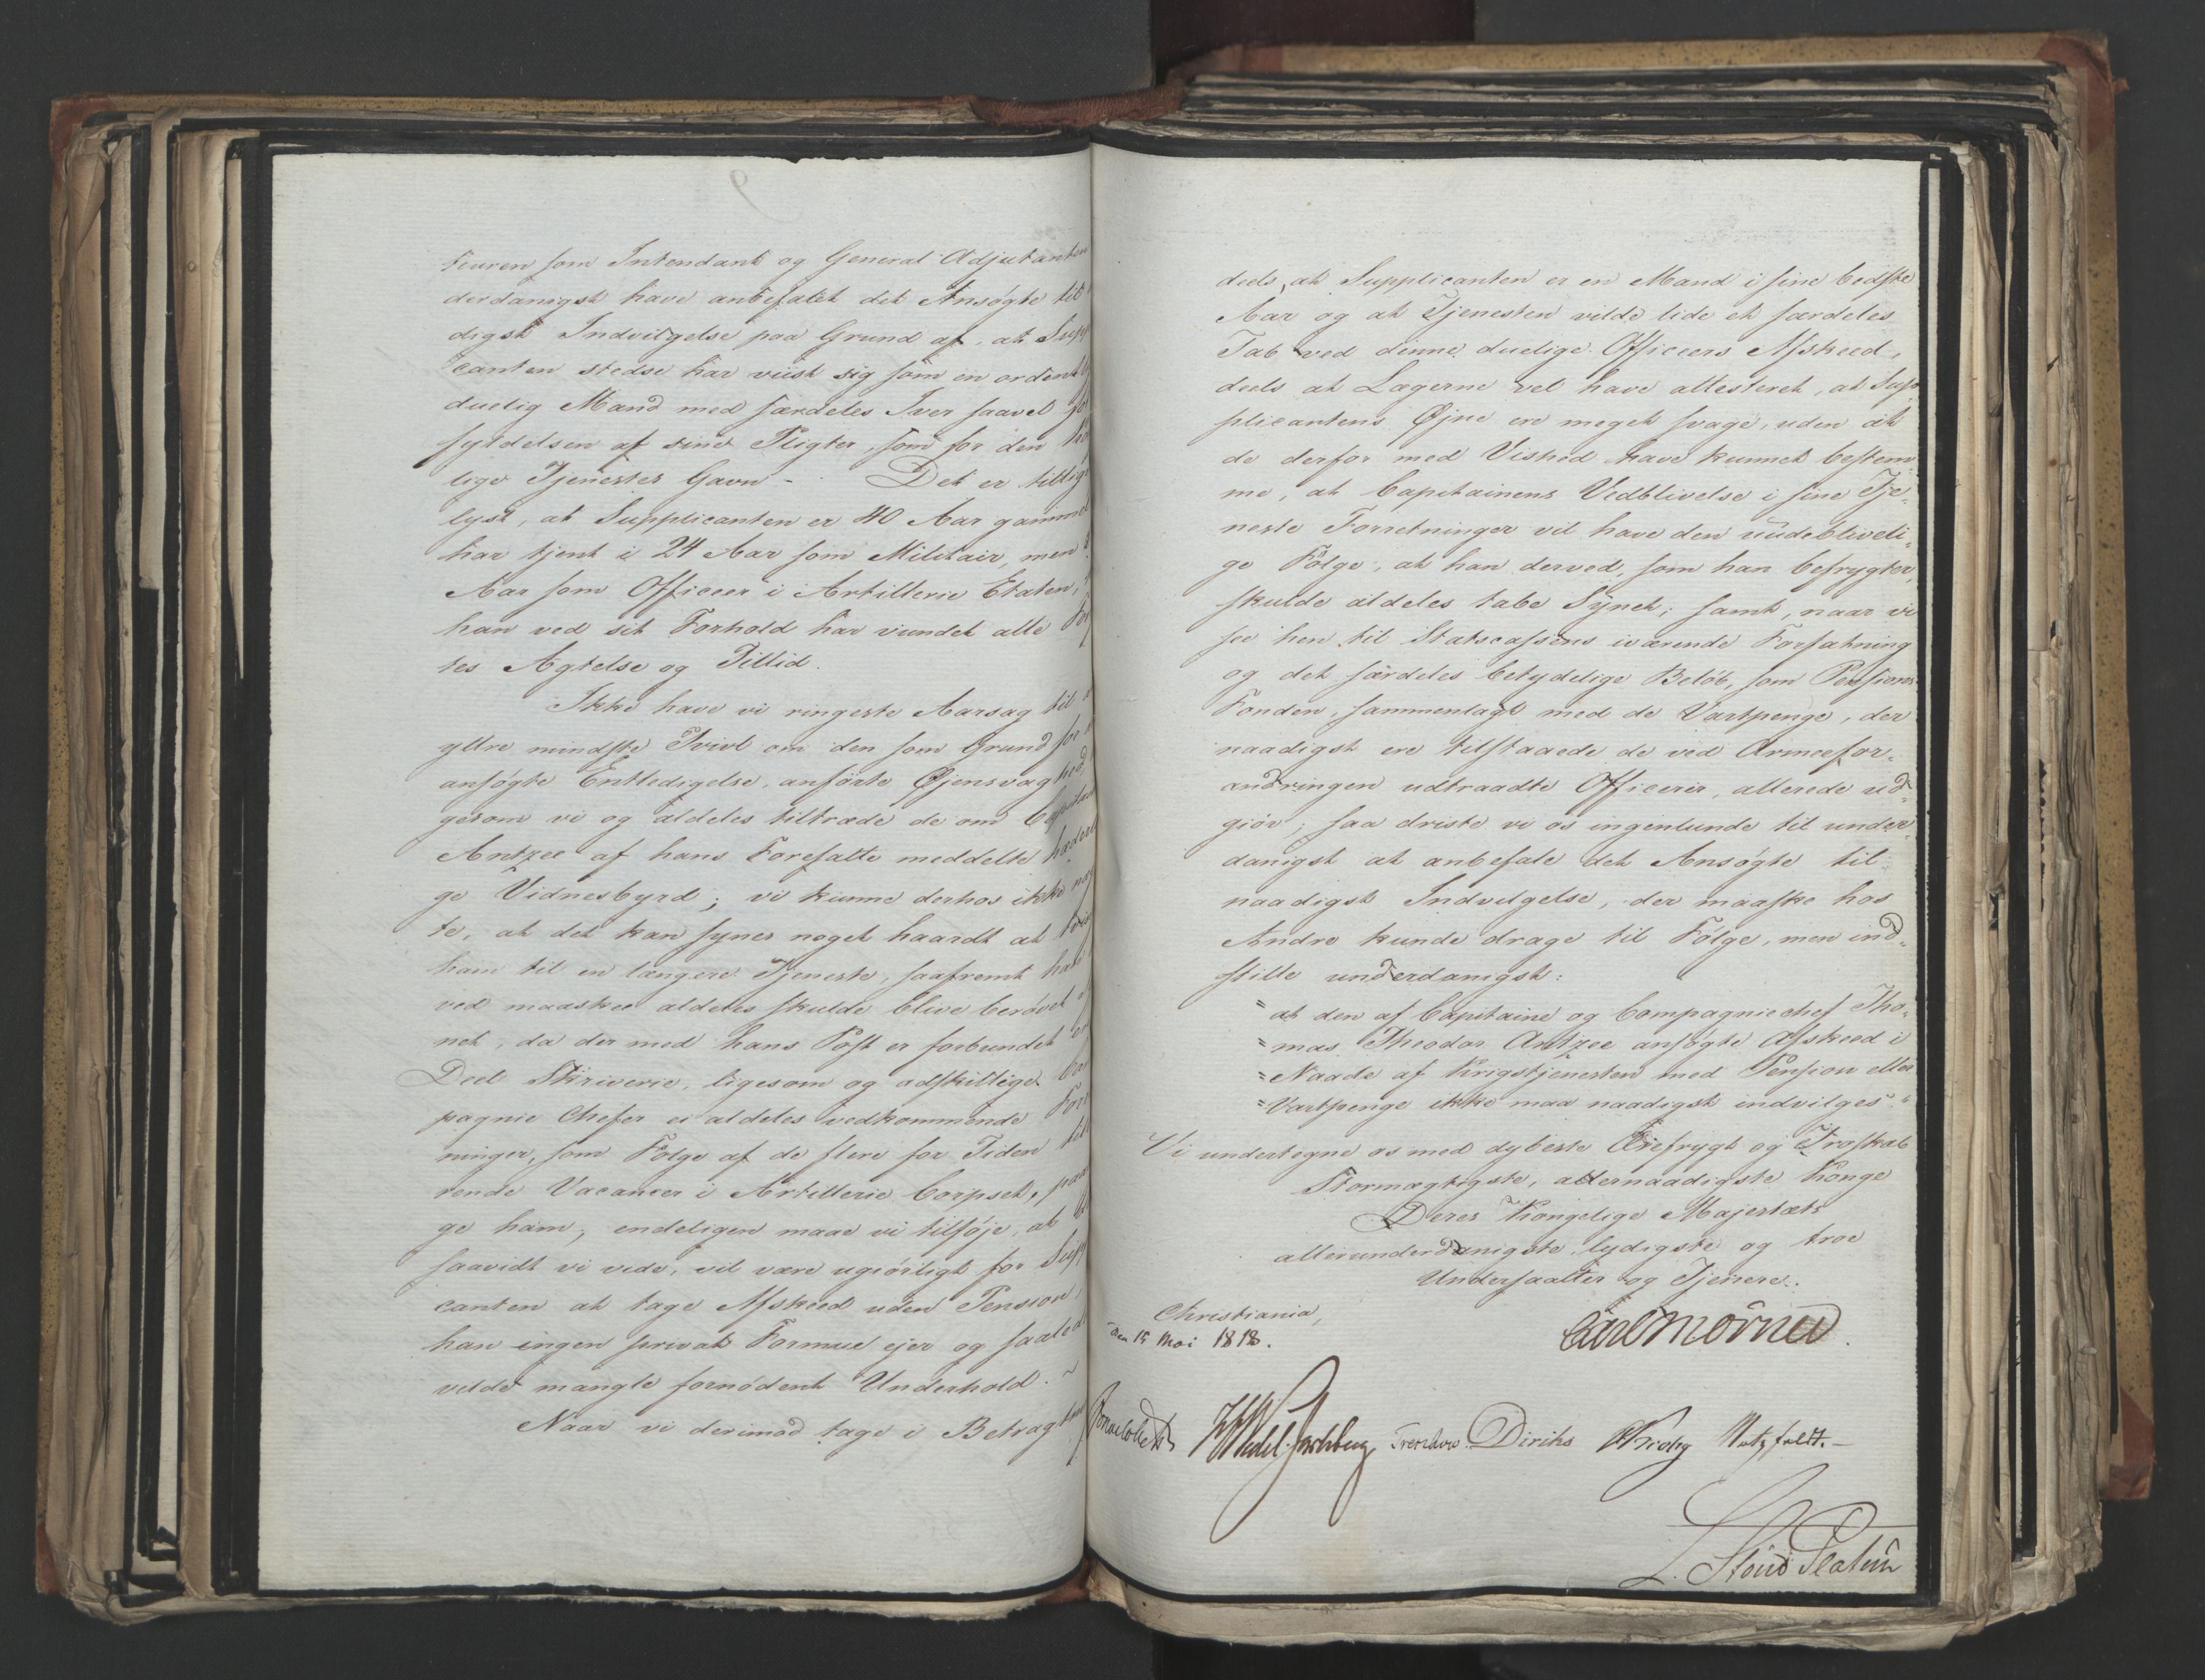 teuren som Intendant og General Adjutanten
derdanigst have anbefalet det Ansøgte til
digst Indvilgelse paa Grund af, at Supp
canten stedse har viist sig som en ordentl
duelig Mand med særdeles Iver saavel
fyldelsen af sine Pligter, som for den
lige Tjenestes Gavn - Det er tillig
lyst, at Supplicanten er 40 Aar gammel
har tjent i 24 Aar som Militair, men
Aar som Officeer i Artillerie Etaten,
han ved sit Forhold har vundet alle
tes Agtelse og Tillid.
Ikke have vi ringeste Aarsag til
yttre mindste Tvivl om den som Grund for
ansøgte Entledigelse, anførte Øjensvaghed,
gesom vi og aldeles tiltræde de om Capitain
Antzee af hans Foresatte meddelte hæderl
ge Vidnesbyrd; vi kunne derhos ikke næg
te, at det kan synes noget haardt at
ham til en længere Tjeneste, saafremt han
ved maaskee aldeles skulde blive berøvet
net, da der med hans Post er forbundet en
Deel Skriverie, ligesom og adskillige
pagnie Chefer ei aldeles vedkommende Forr
ninger, som Følge af de flere for Tiden
rende Vacancer i Artillerie Corpset, paa
ge ham; endeligen maae vi tilføje, at
saavidt vi vide, vil være ugiørligt for Supp
canten at tage Afskeed uden Pension,
han ingen privat Formue ejer og saaled
vilde mangle fornødent Underhold. ~
Naar vi derimod tage i Betragt
deels, at Supplicanten er en Mand i sine bedste
Aar og at Tjenesten vilde lide et særdeles
Tab ved denne duelige Officeers Afskeed,
deels at Lægerne vel have attesteret, at Sup
plicantens Øjne ere meget svage, uden at
de derfor med Vished have kunnet bestem
me, at Capitainens Vedblivelse i sine Tje-
neste Forretninger vil have den uudeblivli-
ge Følge, at han derved, som han befrygter,
skulde aldeles tabe Synet; samt, naar vi
see hen til Statscassens iværende Forfatning
og det særdeles betydelige Beløb, som Pensions
Fonden, sammenlagt med de Vartpenge, der
naadigst ere tilstaaede de ved Armeefor-
andringen udtraadte Officerer, allerede ud-
giør; saa driste vi os ingenlunde til under-
danigst at anbefale det Ansøgte til
naadigst Indvilgelse, der maaske hos
Andre kunde drage til Følge, men ind-
stille underdanigst:
"at den af Capitaine og Compagniechef Tho-
"mas Theodor Antzee ansøgte Afskeed i
"Naade af Krigstjenesten med Pension eller
"Vartpenge ikke maa naadigst indvilges."
Vi undertegne os med dybeste Ærefrygt og Troskab
Stormægtigste, allernaadigste Konge
Deres Kongelige Majestæts
allerunderdanigste, lydigste og troe
Undersaatter og Tjenere.
Christiania,
den 15 Mai 1818.
Carl Mörner.
Sommerhielm Wedel Jarlsberg Treschow. Diriks Krohg Motzfeldt. -
L. Stoud Platou